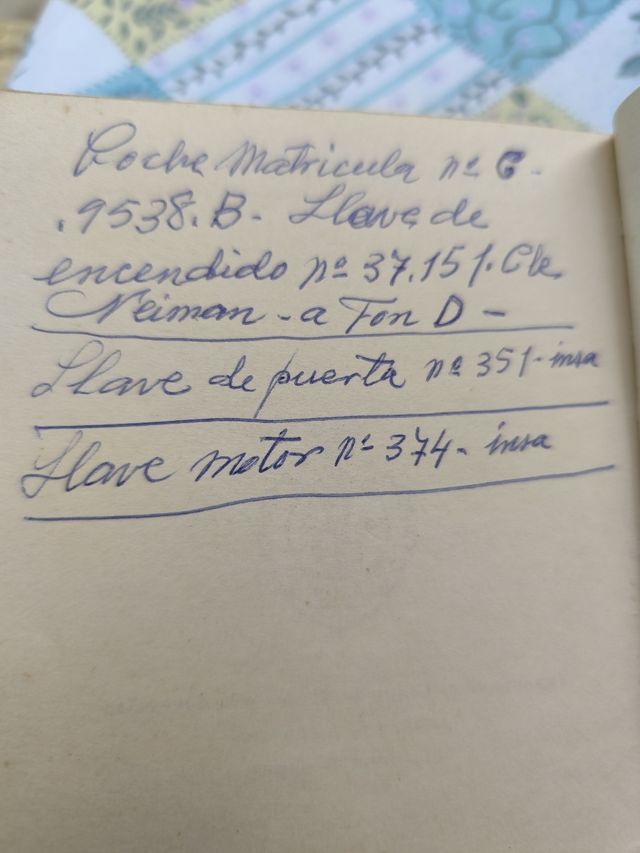 Coche Matricula nº C.
.9538.B. Llave de
encendido nº 37.151. Cle
Neiman - a Ton D -
Llave de puerta nº 351- insa
Llave motor nº 374- insa